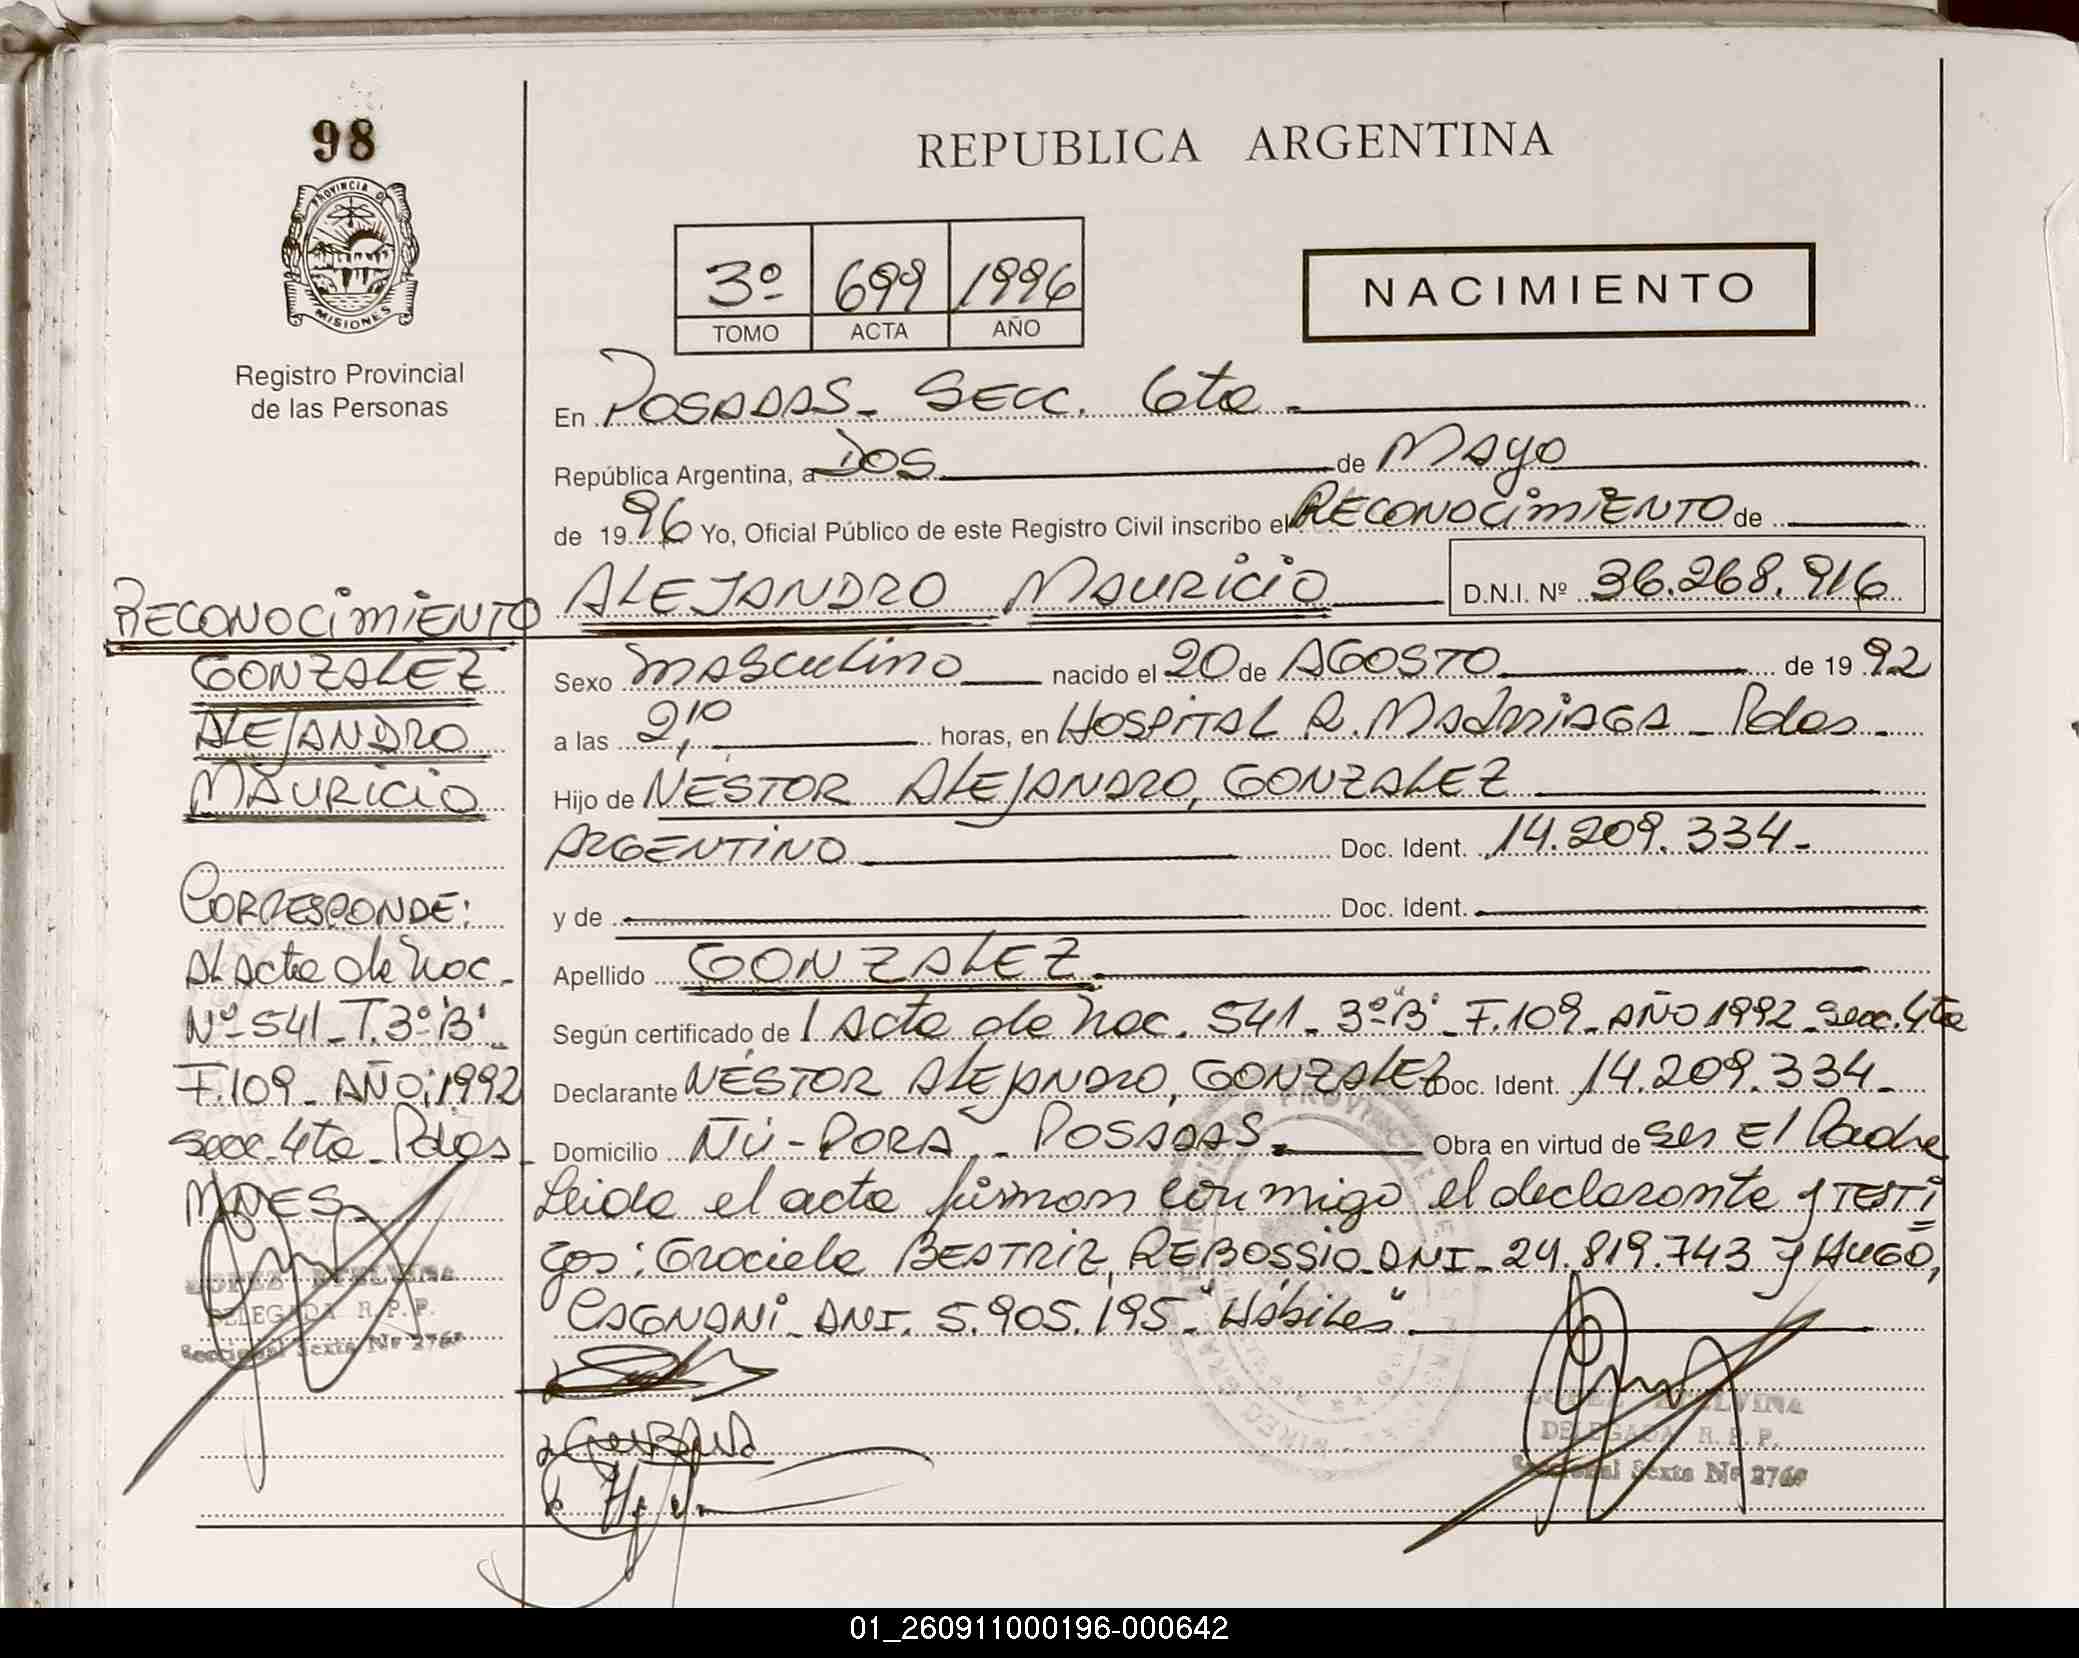 98
PROVINCIA D
MISIONES
Registro Provincial
de las Personas
REPUBLICA ARGENTINA
3º 699 1996
TOMO ACTA AÑO
NACIMIENTO
En POSADAS - SECC. 6ta -
República Argentina, a DOS de MAYO
de 1996 Yo, Oficial Público de este Registro Civil inscribo el RECONOCIMIENTO de
ALEJANDRO MAURICIO D.N.I. Nº 36.268.916
Sexo MASCULINO nacido el 20 de AGOSTO de 1992
a las 2,10 horas, en HOSPITAL R. MADARIAGA - Pdas -
Hijo de NÉSTOR ALEJANDRO, GONZALEZ
ARGENTINO Doc. Ident. 14.209.334-
y de Doc. Ident.
Apellido GONZALEZ
Según certificado de l Acta de Nac. 541 - 3º "B" - F.109 - AÑO 1992 - Secc. 4ta
Declarante NÉSTOR ALEJANDRO, GONZALEZ Doc. Ident. 14.209.334-
Domicilio ÑÚ-PORA - POSADAS - Obra en virtud de ser El Padre
Leida el acta firman conmigo el declarante y TESTI
gos: Graciela BEATRIZ, REBOSSIO - DNI - 24.819.743 y HUGO,
CAGNANI - DNI. 5.905.195 - "Hábiles" -
LOPEZ ETELVINA
DELEGADA R.P.P.
Seccional Sexta Nº 2768
RECONOCIMIENTO
GONZALEZ
ALEJANDRO
MAURICIO
CORRESPONDE:
AL Acta de Nac.
Nº 541 - T.3º "B"
F.109 - AÑO: 1992
Secc. 4ta - Pdas -
MNES -
LOPEZ ETELVINA
DELEGADA R.P.P.
Seccional Sexta Nº 2768
01_260911000196-000642